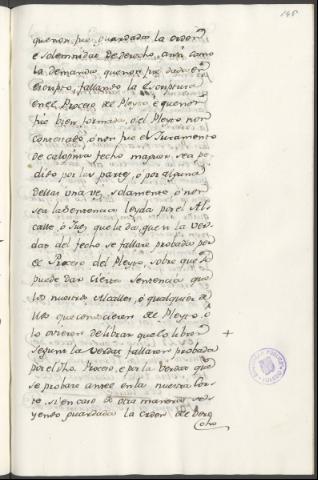 145
que non fue guardada la orden
e solemnidad de derecho, ansi como
la demanda, que non fue dada en
escripto, fallando la escriptura
en el Proceso del Pleyto, e que non
fue bien formada, o el Pleyto non
contestado, o non fue el Juramento
de calopnia fecho maguer sea pe-
dido por las partes, o por alguna
dellas una vez solamente, o non
sea la Sentencia leyda por el Al-
calle, o Juez que la da, que si la ver-
dad del fecho se fallare probada por
el Proceso del Pleyto, sobre que se
puede dar cierta Sentencia que
los nuestros Alcalles, o qualquier de
llos que conoscieren del Pleyto, o
lo ovieren de librar que lo libren
segunt la verdad fallaren probada
por el dho. Proceso, e por la verdad que
se probare ante en la nuestra Cor-
te, si en caso de otra manera seds
yendo guardada la orden del Dere
cho